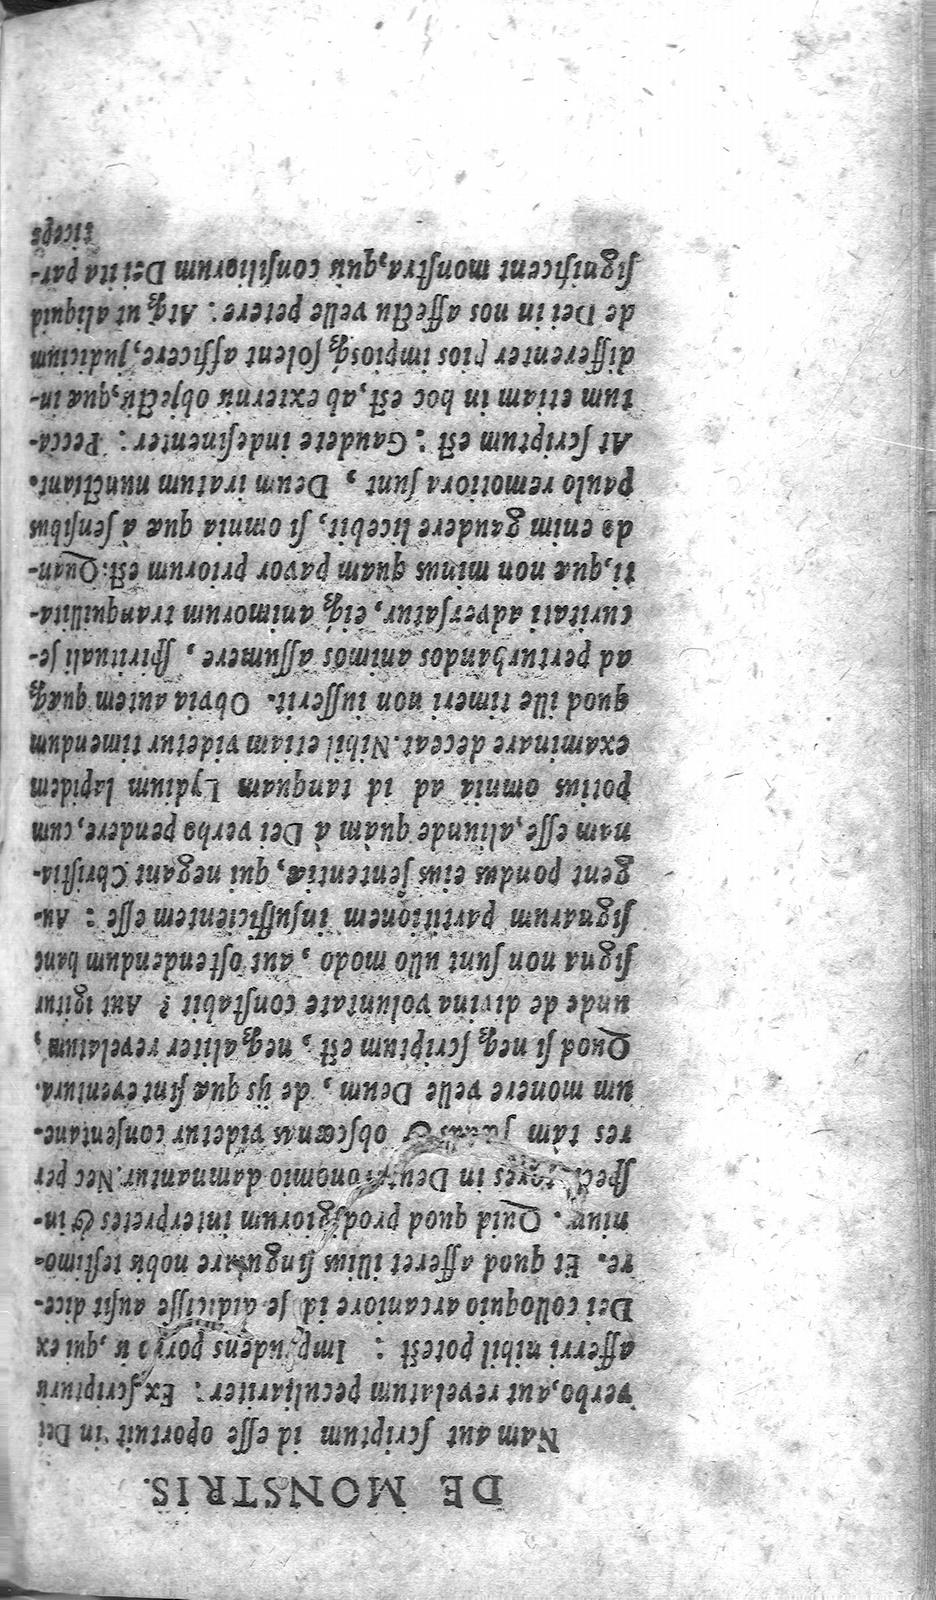 DE MONSTRIS.
Nam aut ſcriptum id eſſe oportuit in Dei
verbo, aut revelatum peculiariter: Ex ſcripturâ
afferri nihil poteſt: Impudens porrò is, qui ex
Dei colloquio arcaniore id ſe didiciſſe auſit dice-
re. Et quod afferet illius ſingulare nobis teſtimo-
nium. Quid quod prodigiorum interpretes & in-
ſpectores in Deuteronomio damnantur. Nec per
res tàm & obſcœnas videtur conſentane-
um monere velle Deum, de ijs quæ ſint eventura.
Quod ſi neq; ſcriptum eſt, neq; aliter revelatum,
unde de divina voluntate conſtabit? Aut igitur
ſigna non ſunt ullo modo, aut oſtendendum hanc
ſignarum partitionem inſufficientem eſſe: Au-
gent pondus eius ſententiæ, qui negant Chriſtia-
nam eſſe, aliunde quàm à Dei verbo pendere, cum
potius omnia ad id tanquam Lydium lapidem
examinare deceat. Nihil etiam videtur timendum
quod ille timeri non iuſſerit. Obvia autem quæq;
ad perturbandos animos aſſumere, ſpirituali ſe-
curitati adverſatur, eiq; animorum tranquillita-
ti, quæ non minus quam pavor priorum eſt: Quan-
do enim gaudere licebit, ſi omnia quæ à ſenſibus
paulo remotiora ſunt, Deum iratum nunctiant.
At ſcriptum eſt: Gaudete indeſinenter: Pecca-
tum etiam in hoc eſt, ab externo objectu, quæ in-
differenter pios impiosq; ſolent afficere, judicium
de Dei in nos affectu velle petere: Atq; ut aliquid
ſignificent monſtra, quis conſiliorum Dei ita par-
ticeps